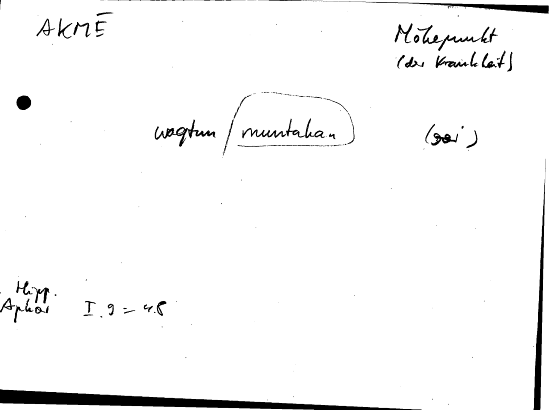 AKMĒ
Höhepunkt
(der Krankheit)
waqtun / muntahan
Hipp.
Aphor I. 9 = 4.8